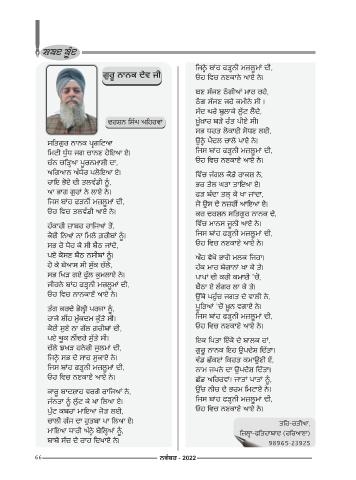 ਸ਼ਬਦ ਬੂੰਦ
ਗੁਰੂ ਨਾਨਕ ਦੇਵ ਜੀ
ਦਰਸ਼ਨ ਸਿੰਘ ਅਹਿਰਵਾਂ
ਸਤਿਗੁਰ ਨਾਨਕ ਪ੍ਰਗਟਿਆ
ਮਿਟੀ ਧੁੰਧ ਜਗ ਚਾਨਣ ਹੋਇਆ ਏ।
ਚੰਨ ਚੜ੍ਹਿਆ ਪੂਰਨਮਾਸ਼ੀ ਦਾ,
ਅਗਿਆਨ ਅੰਧੇਰ ਪਲੋਇਆ ਏ।
ਰਾਇ ਭੋਏ ਦੀ ਤਲਵੰਡੀ ਨੂੰ,
ਆ ਭਾਗ ਗੁਰਾਂ ਨੇ ਲਾਏ ਨੇ।
ਜਿਸ ਬਾਂਹ ਫੜਨੀ ਮਜ਼ਲੂਮਾਂ ਦੀ,
ਓਹ ਵਿਚ ਤਲਵੰਡੀ ਆਏ ਨੇ।
ਹੰਕਾਰੀ ਜ਼ਾਬਰ ਰਾਜਿਆਂ ਤੋਂ,
ਕੋਈ ਨਿਆਂ ਨਾ ਮਿਲੇ ਗਰੀਬਾਂ ਨੂੰ।
ਸਭ ਰੋ ਧੋਰ ਕੇ ਸੀ ਬੈਠ ਜਾਂਦੇ,
ਪਏ ਕੋਸਣ ਬੈਠ ਨਸੀਬਾਂ ਨੂੰ।
ਹੋ ਕੇ ਬੇਆਸ ਸੀ ਸੁੱਕ ਚੱਲੇ,
ਸਭ ਖਿੜ ਗਏ ਫੁੱਲ ਕੁਮਲਾਏ ਨੇ।
ਜੀਹਨੇ ਬਾਂਹ ਫੜਨੀ ਮਜ਼ਲੂਮਾਂ ਦੀ,
ਓਹ ਵਿਚ ਨਾਨਕਾਣੇ ਆਏ ਨੇ।
ਤੰਗ ਕਰਦੇ ਭੋਲੀ ਪਰਜਾ ਨੂੰ,
ਰਾਜੇ ਸ਼ੀਂਹ ਮੁਕੱਦਮ ਕੁੱਤੇ ਸੀ।
ਕੋਈ ਸੁਣੇ ਨਾ ਗੱਲ ਗਰੀਬਾਂ ਦੀ,
ਪਏ ਘੂਕ ਨੀਂਦਰੇ ਸੁੱਤੇ ਸੀ।
ਚੱਲੇ ਝਖੜ ਹਨੇਰੀ ਜ਼ੁਲਮਾਂ ਦੀ,
ਜਿਨ੍ਹੇ ਸਭ ਦੇ ਸਾਹ ਸੁਕਾਏ ਨੇ।
ਜਿਸ ਬਾਂਹ ਫੜਨੀ ਮਜ਼ਲੂਮਾਂ ਦੀ,
ਓਹ ਵਿਚ ਨਣਕਾਣੇ ਆਏ ਨੇ।
ਕਾਰੂ ਬਾਦਸ਼ਾਹ ਵਰਗੇ ਰਾਜਿਆਂ ਨੇ,
ਜੰਨਤਾ ਨੂੰ ਲੁੱਟ ਕੇ ਖਾ ਲਿਆ ਏ।
ਪੁੱਟ ਕਬਰਾਂ ਮਾਇਆ ਜੋੜ ਲਈ,
ਚਾਲੀ ਗੰਜ ਦਾ ਰੁਤਬਾ ਪਾ ਲਿਆ ਏ।
ਮਾਇਆ ਧਾਰੀ ਅੰਨ੍ਹੇ ਬੋਲਿਆਂ ਨੂੰ,
ਬਾਬੇ ਸੱਚ ਦੇ ਰਾਹ ਦਿਖਾਏ ਨੇ।
ਜਿਨ੍ਹੇ ਬਾਂਹ ਫੜਨੀ ਮਜ਼ਲੂਮਾਂ ਦੀ,
ਓਹ ਵਿਚ ਨਣਕਾਣੇ ਆਏ ਨੇ।
ਬਣ ਸੱਜਣ ਠੱਗੀਆਂ ਮਾਰ ਰਹੇ,
ਠੱਗ ਸੱਜਣ ਜਹੇ ਕਮੀਨੇ ਸੀ।
ਸੱਦ ਘਰੇ ਬੁਲਾਕੇ ਲੁੱਟ ਲੈਂਦੇ,
ਖੂੰਖਾਰ ਬੜੇ ਰੱਤ ਪੀਣੇ ਸੀ।
ਸਭ ਧਰਤ ਲੋਕਾਈ ਸੋਧਣ ਲਈ,
ਉਨ੍ਹੇ ਪੈਦਲ ਚਾਲੇ ਪਾਏ ਨੇ।
ਜਿਸ ਬਾਂਹ ਫੜਨੀ ਮਜ਼ਲੂਮਾਂ ਦੀ,
ਓਹ ਵਿਚ ਨਣਕਾਣੇ ਆਏ ਨੇ।
ਵਿੱਚ ਜੰਗਲ ਕੌਡੇ ਰਾਕਸ਼ ਨੇ,
ਭਰ ਤੇਲ ਘੜਾ ਤਾਇਆ ਏ।
ਫੜ ਬੰਦਾ ਤਲ੍ਹ ਕੇ ਖਾ ਜਾਂਦਾ,
ਜੋ ਉਸ ਦੇ ਨਜ਼ਰੀਂ ਆਇਆ ਏ।
ਕਰ ਦਰਸ਼ਨ ਸਤਿਗੁਰ ਨਾਨਕ ਦੇ,
ਵਿੱਚ ਮਾਨਸ ਜੂਨੀ ਆਏ ਨੇ।
ਜਿਸ ਬਾਂਹ ਫੜਨੀ ਮਜ਼ਲੂਮਾਂ ਦੀ,
ਓਹ ਵਿਚ ਨਣਕਾਣੇ ਆਏ ਨੇ।
ਔਹ ਵੇਖੋ ਭਾਗੋ ਮਲਕ ਜਿਹਾ।
ਹੱਕ ਮਾਰ ਬੇਗਾਨਾਂ ਖਾ ਕੇ ਤੇ।
ਪਾਪਾਂ ਦੀ ਕਰੀ ਕਮਾਈ 'ਚੋਂ,
ਬੈਠਾ ਏ ਲੰਗਰ ਲਾ ਕੇ ਤੇ।
ਉੱਥੇ ਪਹੁੰਚ ਜਗਤ ਦੇ ਵਾਲੀ ਨੇ,
ਪੂੜਿਆਂ 'ਚੋਂ ਖੂਨ ਵਗਾਏ ਨੇ।
ਜਿਸ ਬਾਂਹ ਫੜਨੀ ਮਜ਼ਲੂਮਾਂ ਦੀ,
ਓਹ ਵਿਚ ਨਣਕਾਣੇ ਆਏ ਨੇ।
ਇਕ ਪਿਤਾ ਇੱਕੋ ਦੇ ਬਾਲਕ ਹਾਂ,
ਗੁਰੂ ਨਾਨਕ ਇਹ ਉਪਦੇਸ਼ ਦਿੱਤਾ।
ਵੰਡ ਛੱਕਣਾ ਕਿਰਤ ਕਮਾਉਣੀ ਏਂ,
ਨਾਮ ਜਪਨੇ ਦਾ ਉਪਦੇਸ਼ ਦਿੱਤਾ।
ਛੱਡ ਅਹਿਰਵਾਂ ਜਾਤਾਂ ਪਾਤਾਂ ਨੂੰ,
ਊਂਚ ਨੀਚ ਦੇ ਭਰਮ ਮਿਟਾਏ ਨੇ।
ਜਿਸ ਬਾਂਹ ਫੜਨੀ ਮਜ਼ਲੂਮਾਂ ਦੀ,
ਓਹ ਵਿਚ ਨਣਕਾਣੇ ਆਏ ਨੇ।
ਤਹਿ-ਰਤੀਆ,
ਜ਼ਿਲ੍ਹਾ-ਫਤਿਹਾਬਾਦ (ਹਰਿਆਣਾ)
98965-23925
66
ਨਵੰਬਰ - 2022